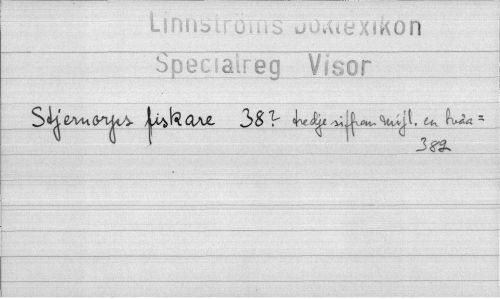 Linnströms Boklexikon
Specialreg Visor
Stjernorps fiskare 38? tredje siffran möjl. en tvåa =
382